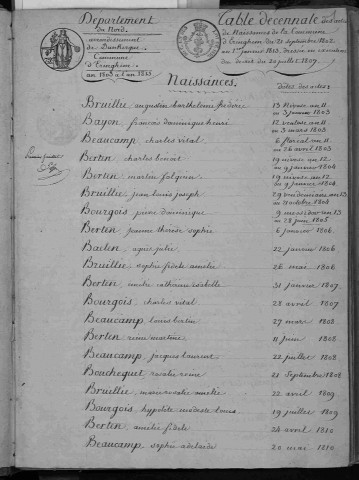 Departement
du Nord.
arrondissement
de Dunkerque
Commune
d'Eringhem
an 1803 à l'an 1813
Table décennale des actes
de Naissances de la Commune
d'Eringhem du 21 septembre 1802
au 1er janvier 1813, dressée en exécution
du décret du 20 juillet 1807.
Naissances.
dates des actes
Bruillie augustin barthelemi frederic 13 Nivose an 11 ou 3 janvier 1803
Bayon, françois dominique henri ventose an 11 ou 3 mars 1803
Beaucamp charles vital 6 floreal an 11 ou 26 avril 1803
Berten charles benoit 19 nivose an 12 ou 9 janvier 1804
Berten, martin folquin 19 nivose an 12 ou 9 janvier 1804
Bruillie jean louis joseph 29 vendemiaire an 13 ou 21 octobre 1804
Bourgois pierre dominique 9 messidor an 13 ou 28 juin 1805
Berten, jeanne therèse sophie 6 janvier 1806
Baclen agnès julie 22 janvier 1806
Bruillie, sophie fidele amelie 26 mai 1806
Berten, marie catherine isabelle 31 janvier 1807
Bourgois, charles vital 28 avril 1807
Beaucamp, louis bertin 29 mars 1808
Berten remi martine 11 juin 1808
Beaucamp, jacques laurent 22 juillet 1808
Bouchequet rosalie reine 21 Septembre 1808
Bruillie, marie rosalie amelie 22 avril 1809
Bourgois, hypolite modeste louis 19 juillet 1809
Berten, amelie fidele 24 avril 1810
Beaucamp, sophie adelaide 20 mai 1810